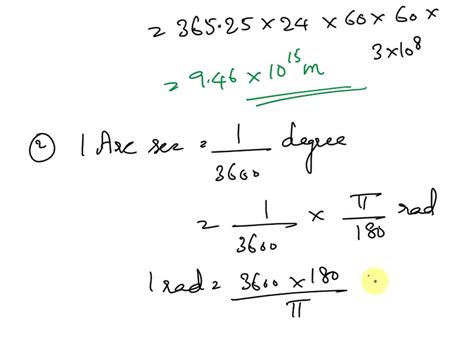 = 365.25 × 24 × 60 × 60 ×
3×10⁸
= 9.46 × 10¹⁵ m
② 1 Arc sec = 1/3600 degree
= 1/3600 × π/180 rad
1 rad = 3600 × 180/π